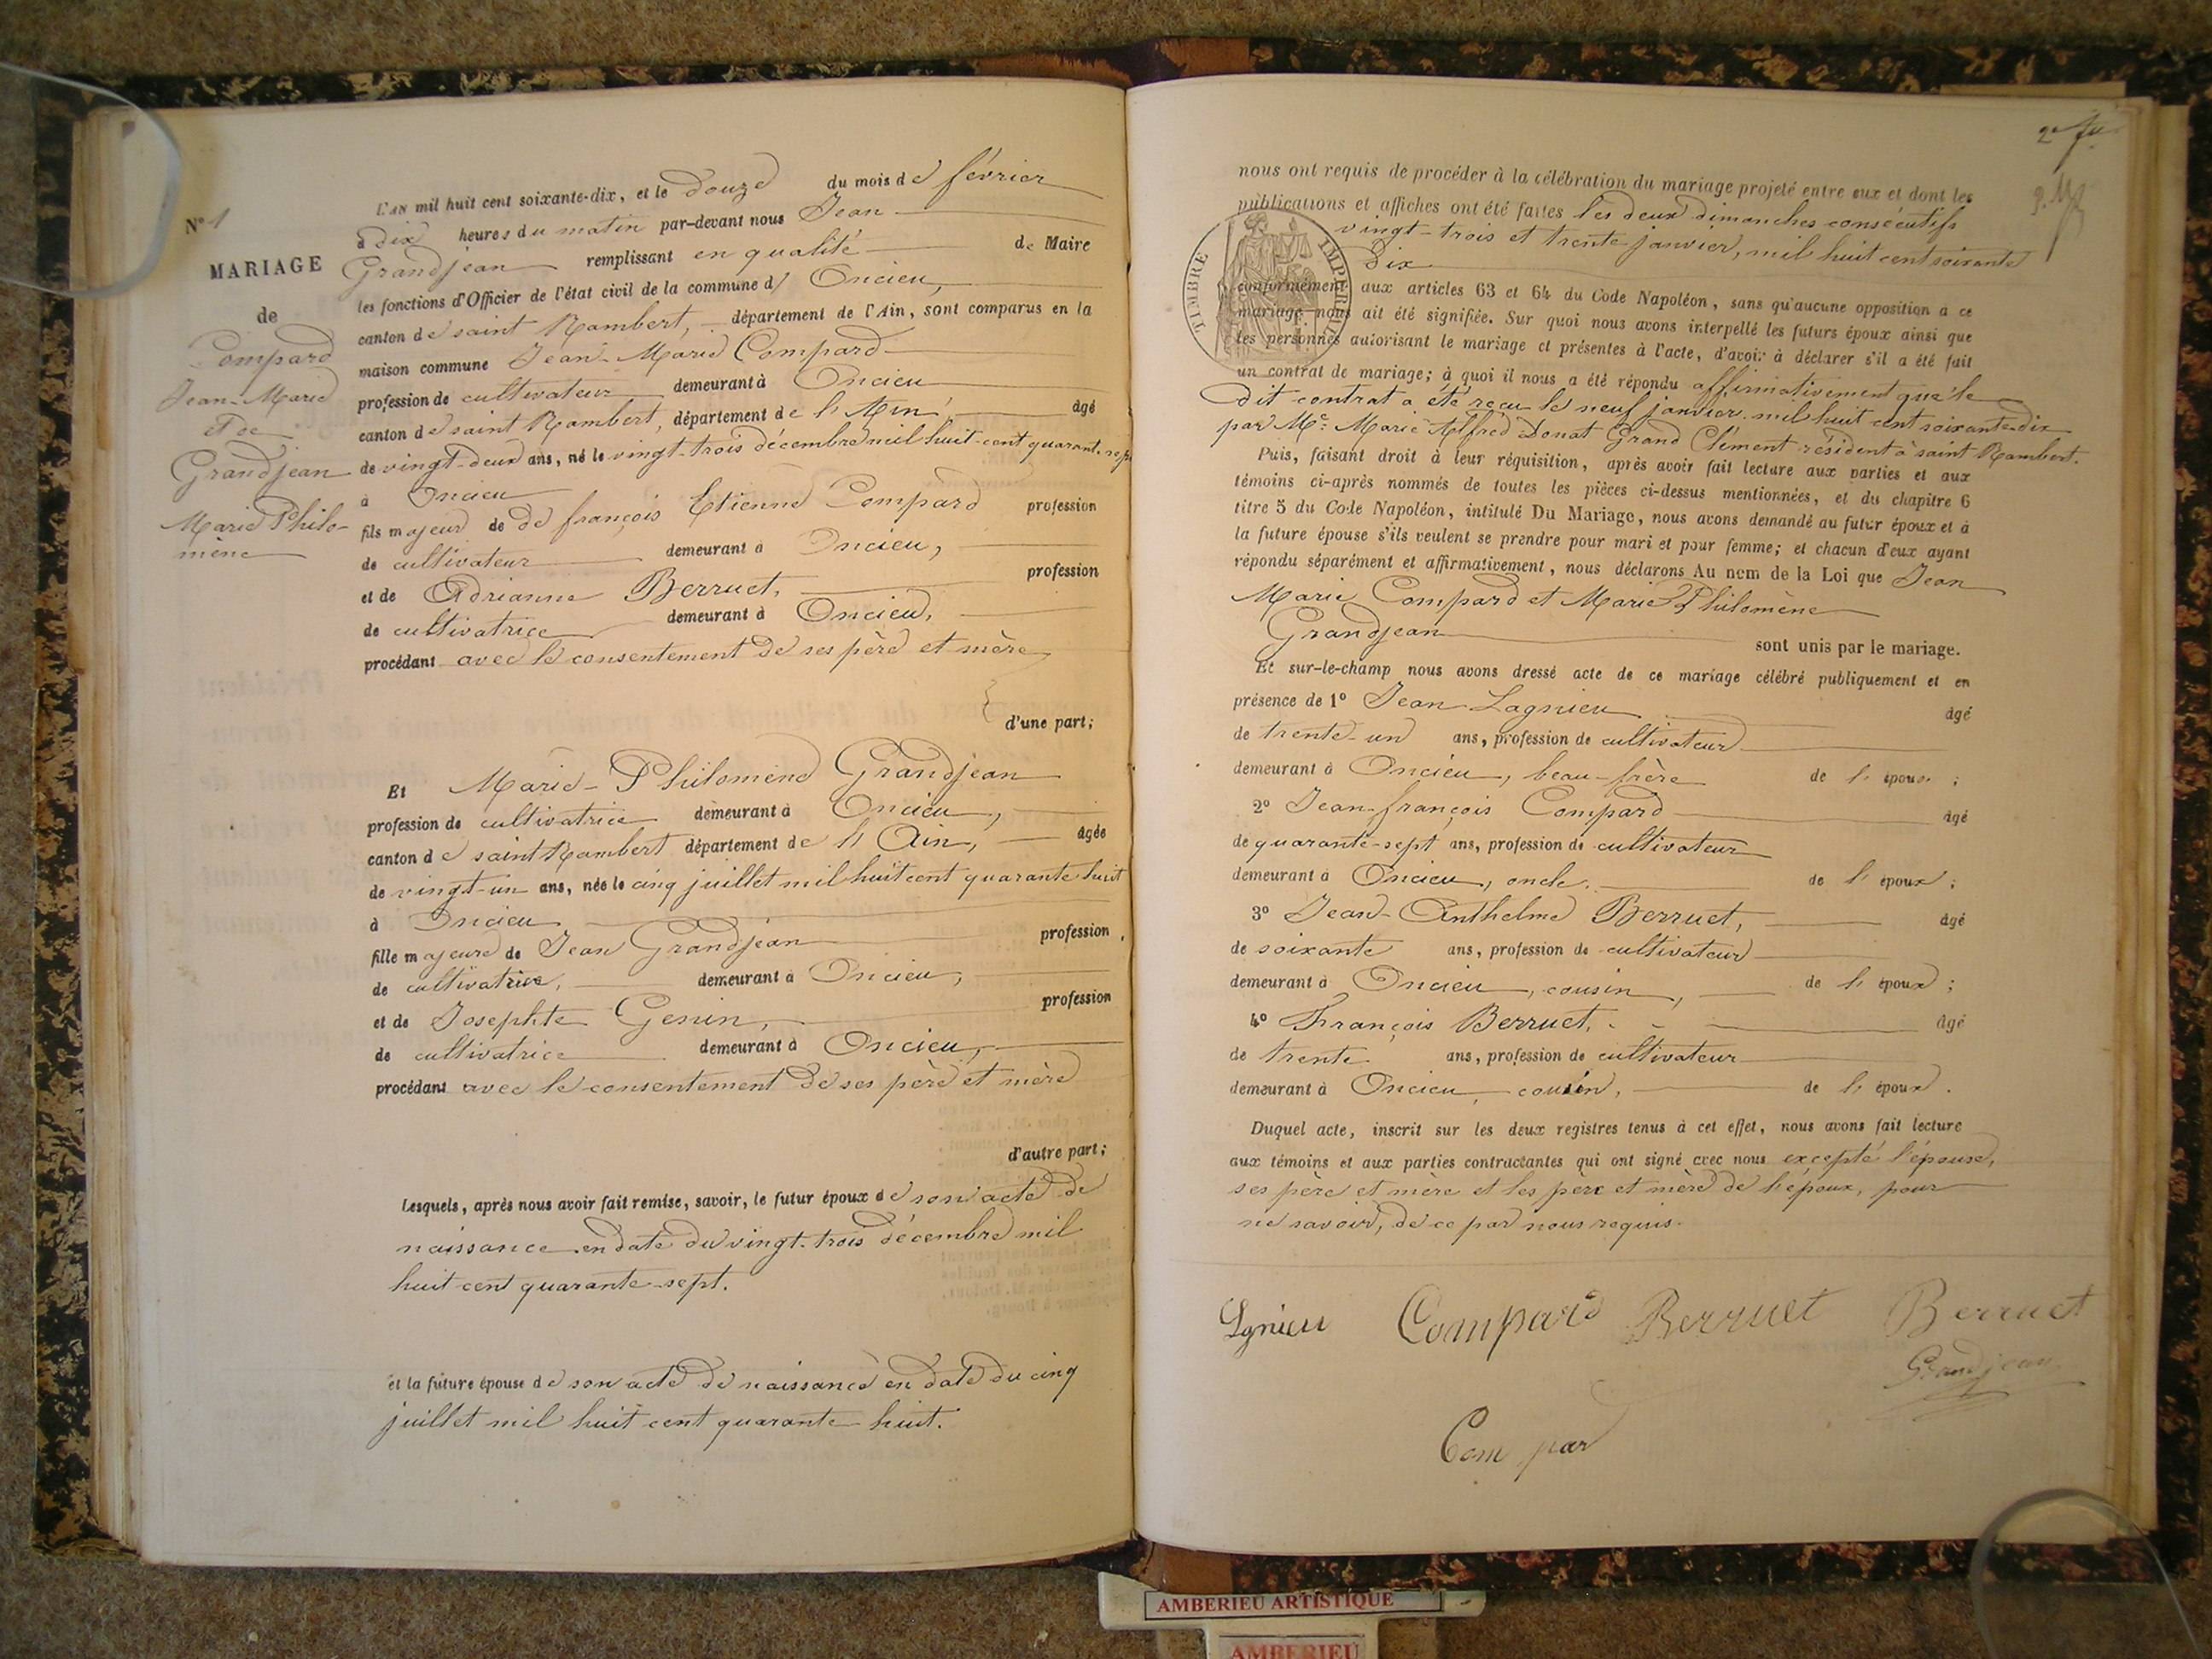 Nº 1
MARIAGE
de
Compard
Jean-Marie
et de
Grandjean
Marie Philo-
mène
L'AN mil huit cent soixante-dix, et le douze du mois de février
à dix heures du matin par-devant nous Jean
Grandjean remplissant en qualité de Maire
les fonctions d'Officier de l'état civil de la commune d' Oncieu,
canton de saint Rambert, département de l'Ain, sont comparus en la
maison commune Jean-Marie Compard
profession de cultivateur demeurant à Oncieu
canton de saint Rambert, département de l'Ain, âgé
de vingt-deux ans, né le vingt-trois décembre mil huit-cent quarante-sept
à Oncieu
fils majeur de de françois Etienne Compard profession
de cultivateur demeurant à Oncieu,
et de Adrianne Berruet, profession
de cultivatrice demeurant à Oncieu,
procédant avec le consentement de ses père et mère
d'une part;
Et Marie-Philomène Grandjean
profession de cultivatrice demeurant à Oncieu,
canton de saint Rambert département de l'Ain, âgée
de vingt-un ans, née le cinq juillet mil huit cent quarante huit
à Oncieu
fille majeure de Jean Grandjean profession
de cultivatrice, demeurant à Oncieu,
et de Josephte Genin, profession
de cultivatrice demeurant à Oncieu,
procédant avec le consentement de ses père et mère
d'autre part;
Lesquels, après nous avoir fait remise, savoir, le futur époux de son acte de
naissance en date du vingt-trois décembre mil
huit cent quarante-sept.
et la future épouse de son acte de naissance en date du cinq
juillet mil huit cent quarante huit.
nous ont requis de procéder à la célébration du mariage projeté entre eux et dont les
publications et affiches ont été faites les deux dimanches consécutifs
vingt-trois et trente janvier, mil huit cent soixante
dix
TIMBRE IMPERIAL
conformément aux articles 63 et 64 du Code Napoléon, sans qu'aucune opposition à ce
mariage nous ait été signifiée. Sur quoi nous avons interpellé les futurs époux ainsi que
les personnes autorisant le mariage et présentes à l'acte, d'avoir à déclarer s'il a été fait
un contrat de mariage; à quoi il nous a été répondu affirmativement que le
dit contrat a été reçu le neuf janvier mil huit cent soixante-dix
par Me Marie Alfred Donat Grand Clément résident à saint Rambert.
Puis, faisant droit à leur réquisition, après avoir fait lecture aux parties et aux
témoins ci-après nommés de toutes les pièces ci-dessus mentionnées, et du chapitre 6
titre 5 du Code Napoléon, intitulé Du Mariage, nous avons demandé au futur époux et à
la future épouse s'ils veulent se prendre pour mari et pour femme; et chacun d'eux ayant
répondu séparément et affirmativement, nous déclarons Au nom de la Loi que Jean
Marie Compard et Marie Philomène
Grandjean sont unis par le mariage.
Et sur-le-champ nous avons dressé acte de ce mariage célébré publiquement et en
présence de 1º Jean Lagnieu âgé
de trente-un ans, profession de cultivateur
demeurant à Oncieu, beau-frère de l'époux;
2º Jean-françois Compard âgé
de quarante-sept ans, profession de cultivateur
demeurant à Oncieu, oncle. de l'époux;
3º Jean-Anthelme Berruet, âgé
de soixante ans, profession de cultivateur
demeurant à Oncieu, cousin, de l'époux;
4º François Berruet, âgé
de trente ans, profession de cultivateur
demeurant à Oncieu, cousin, de l'époux.
Duquel acte, inscrit sur les deux registres tenus à cet effet, nous avons fait lecture
aux témoins et aux parties contractantes qui ont signé avec nous excepté l'épouse,
ses père et mère et les père et mère de l'époux, pour
ne savoir, de ce par nous requis.
Lgnieu Compard Berruet Berruet
Grandjean
Com par
AMBERIEU ARTISTIQUE
AMBERIEU